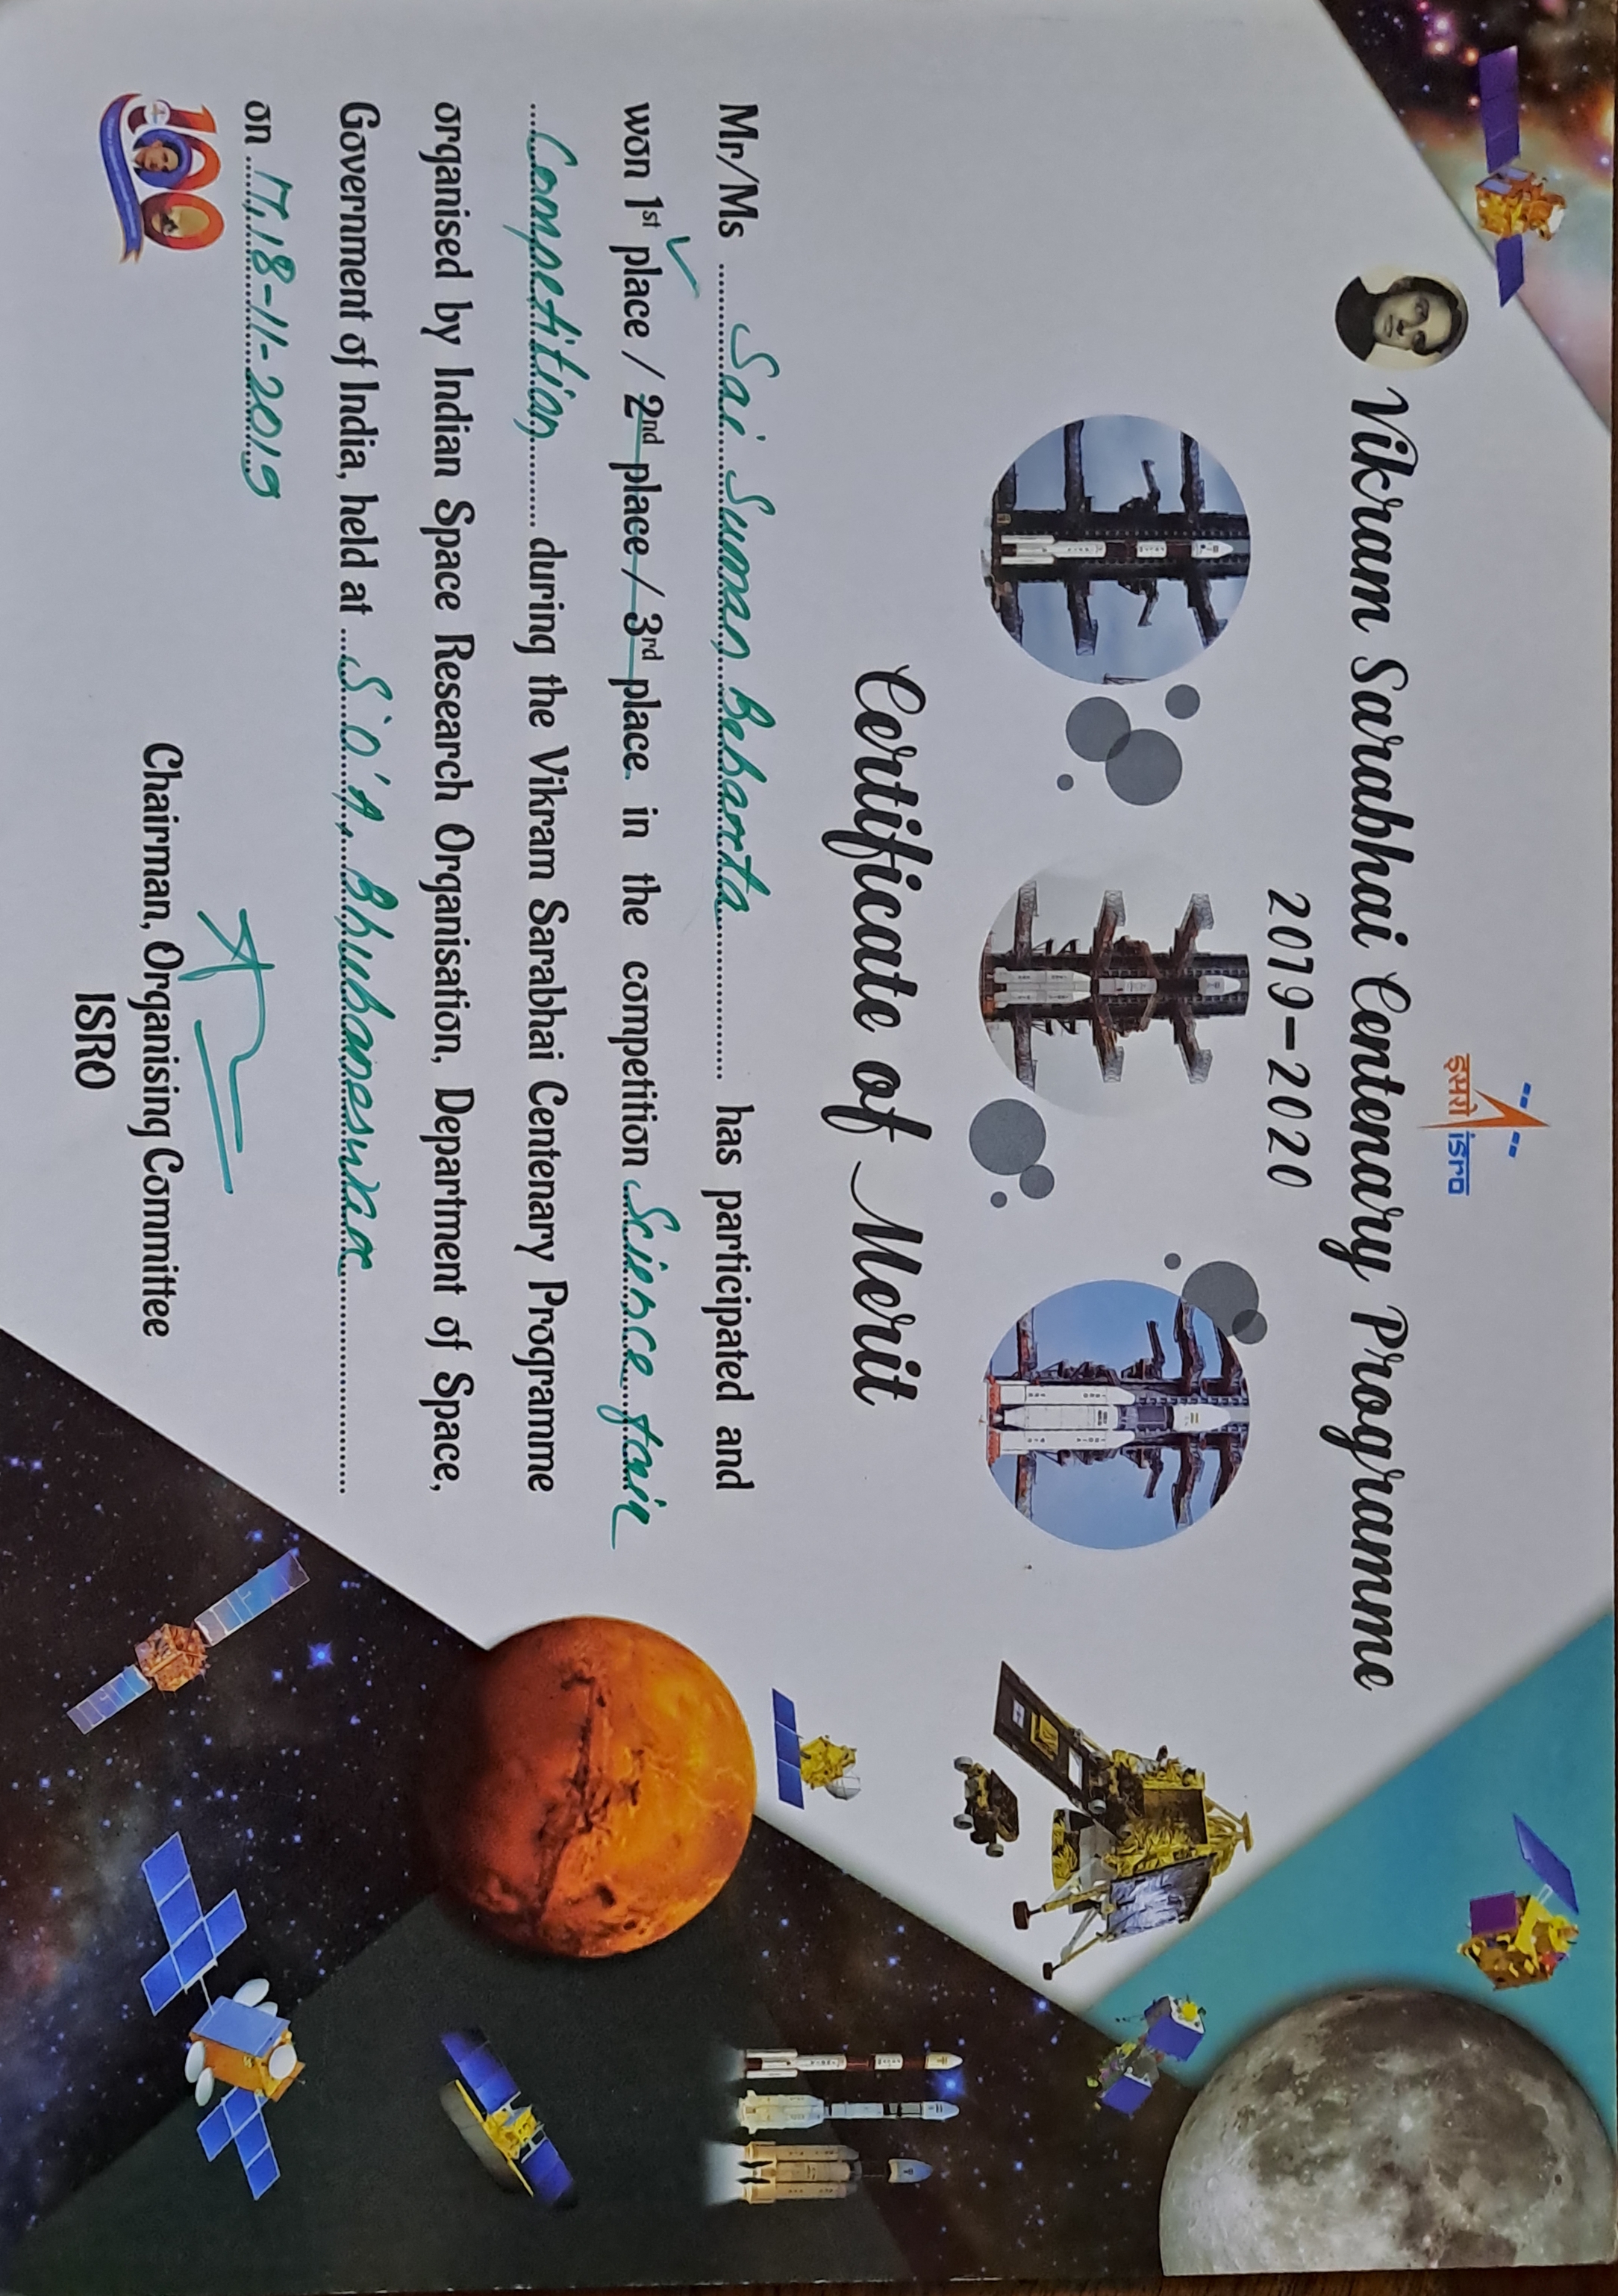 इसरो isro
Vikram Sarabhai Centenary Programme
2019-2020
Certificate of Merit
Mr/Ms Sai Suman Bebarta has participated and
won 1st place / 2nd place / 3rd place in the competition Science fair
Competition during the Vikram Sarabhai Centenary Programme
organised by Indian Space Research Organisation, Department of Space,
Government of India, held at S'O'A, Bhubaneswar
on 17,18-11-2019
100
Chairman, Organising Committee
ISRO